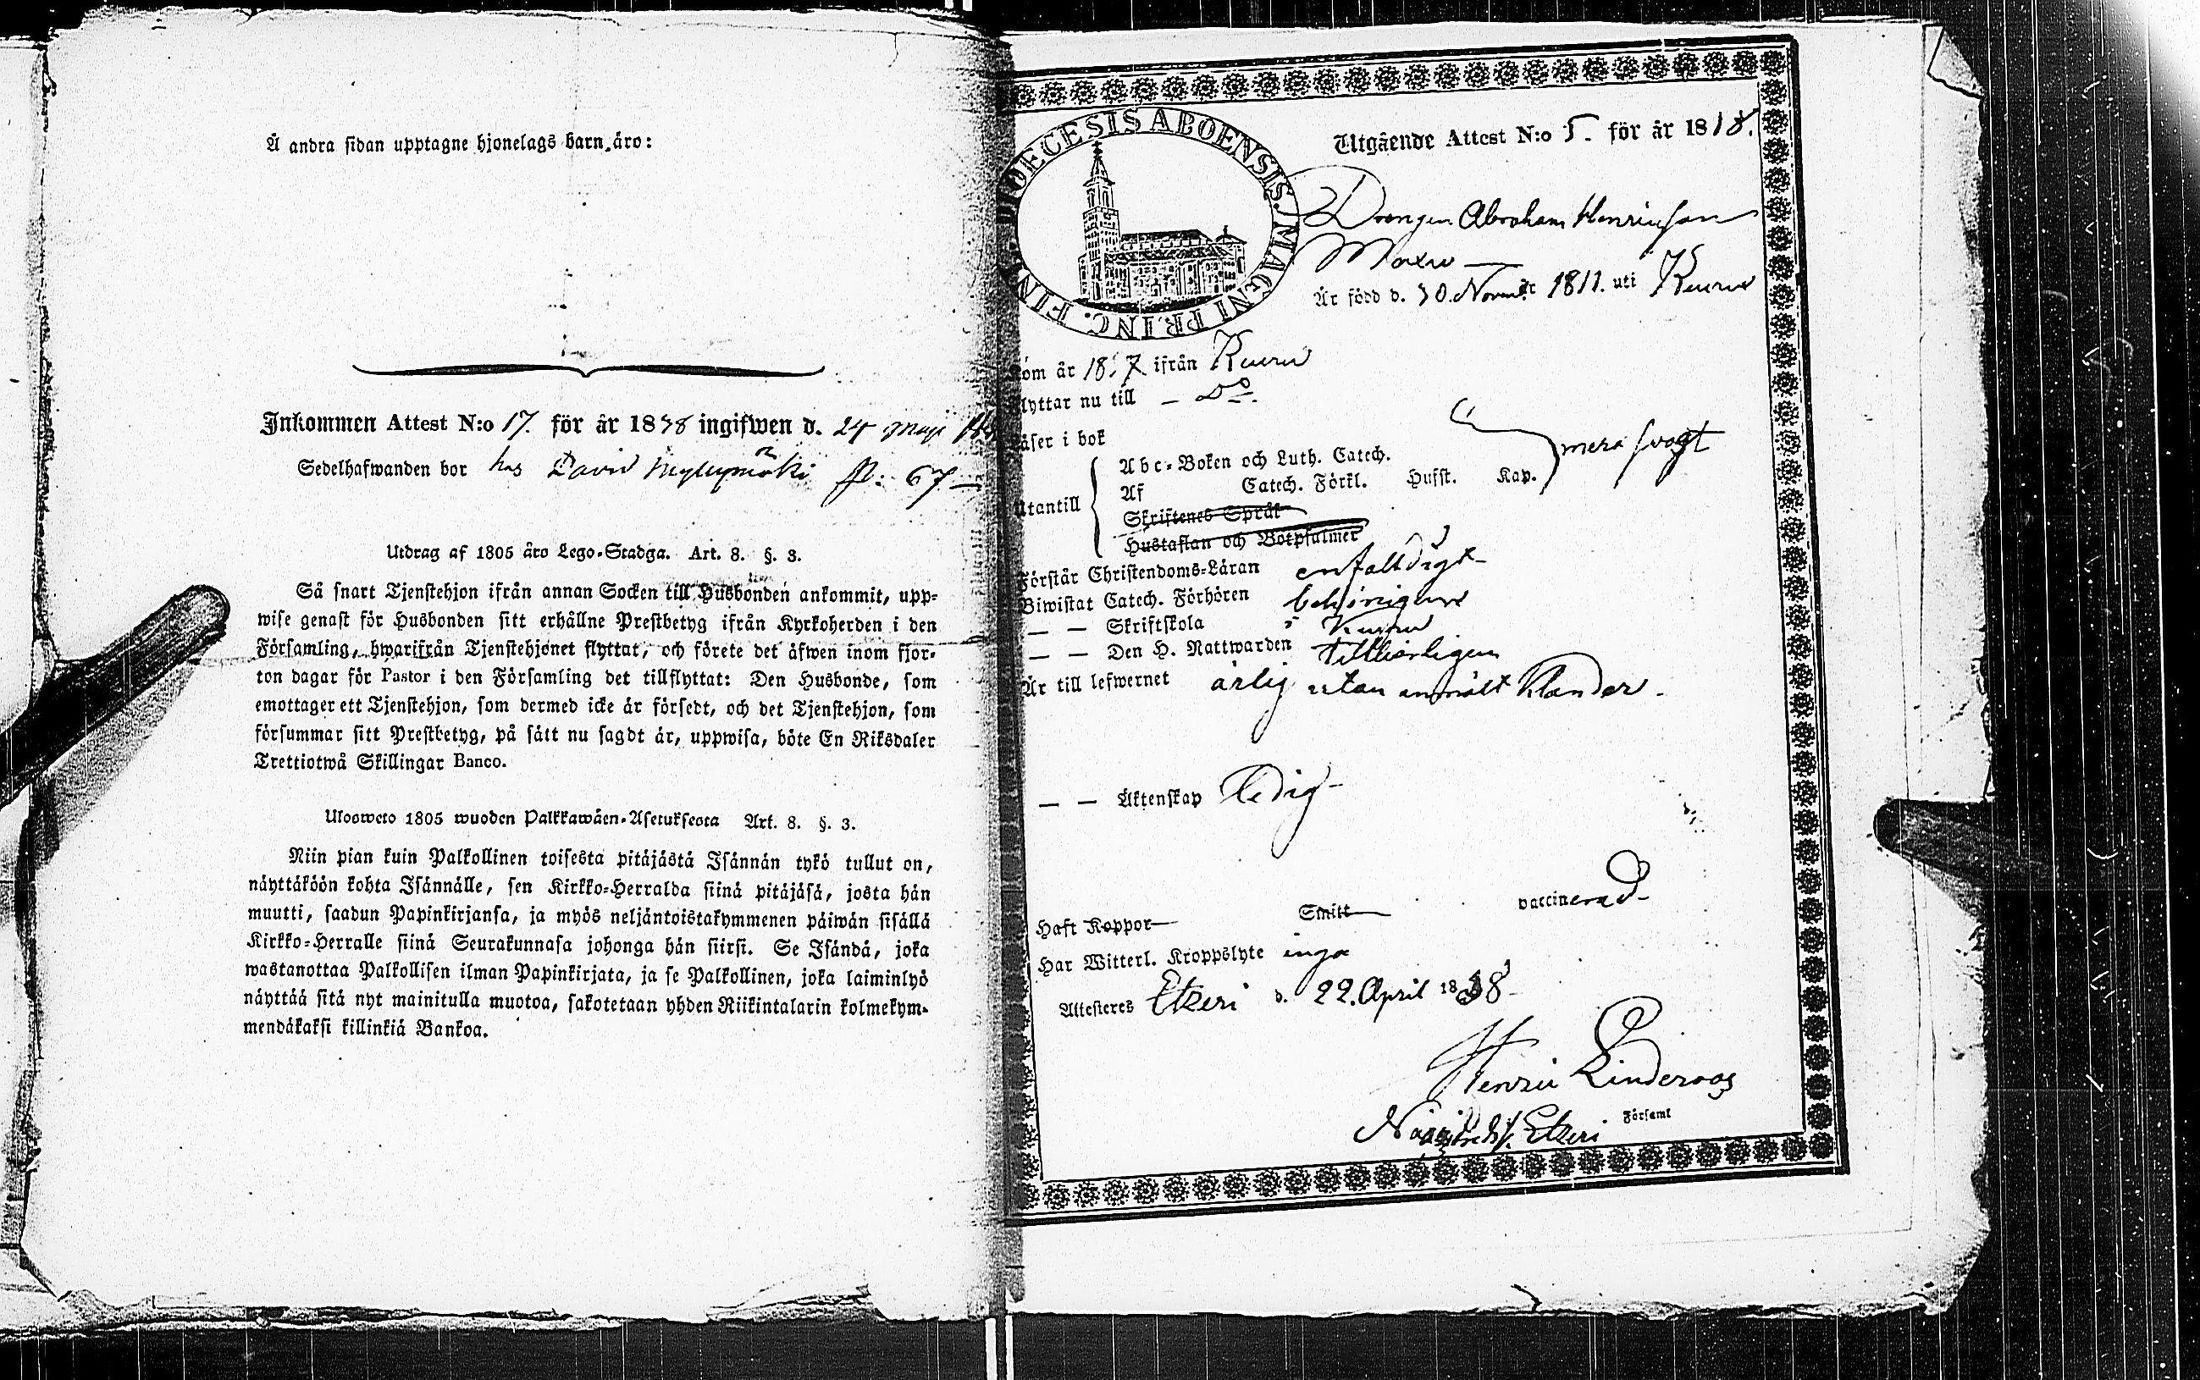 Å andra sidan upptagne hjonelags barn äro:
Inkommen Attest N:o 17. för år 1838 ingifwen d. 24 Maji
Sedelhafwanden bor hos David Myllymäki p: 67
Utdrag af 1805 åro Lego-Stadga. Art. 8. §. 3.
Så snart Tjenstehjon ifrån annan Socken till Husbonden ankommit, upp-
wise genast för Husbonden sitt erhållne Prestbetyg ifrån Kyrkoherden i den
Församling, hwarifrån Tjenstehjonet flyttat, och förete det äfwen inom fjor-
ton dagar för Pastor i den Församling det tillflyttat: Den Husbonde, som
emottager ett Tjenstehjon, som dermed icke är försedt, och det Tjenstehjon, som
försummar sitt Prestbetyg, på sätt nu sagdt är, uppwisa, böte En Riksdaler
Trettiotwå Skillingar Banco.
Uloosweto 1805 wuoden Palkkawäen-Asetuksesta Art. 8. §. 3.
Niin pian kuin Palkollinen toisesta pitäjästä Isännän tykö tullut on,
näyttäköön kohta Isännälle, sen Kirkko-Herralda siinä pitäjäsä, josta hän
muutti, saadun Papinkirjansa, ja myös neljäntoistakymmenen päiwän sisällä
Kirkko-Herralle siinä Seurakunnasa johonga hän siirsi. Se Isändä, joka
wastanottaa Palkollisen ilman Papinkirjata, ja se Palkollinen, joka laiminlyö
näyttää sitä nyt mainitulla muotoa, sakotetaan yhden Riikintalarin kolmekym-
mendäkaksi killinkiä Bankoa.
DIOECESIS ABOENSIS. MAGNI PRINC. FIN
Utgående Attest N:o 5. för år 1838.
Drengen Abraham Henricsson
är född d. 30. Novemb: 1811. uti Kuru
Kom år 1837 ifrån Kuru
flyttar nu till – Do –.
Läser i bok
Abc-Boken och Luth. Catech.
mera svagt
Utantill
Af Catech. Förkl. Husst. Kap.
Skriftenes Språk
Hustaflan och Botpsalmer
Förstår Christendoms-Läran enfaldigt
Biwistat Catech. Förhören behörigen
— — Skriftskola i Kuru
— — Den H. Nattwarden tillbörligen
Är till lefwernet ärlig utan anmält klander.
— — Äktenskap Ledig
Haft Koppor Smitt vaccinerad
Har Witterl. Kroppslyte inga
Attesteres Etzeri d. 22. April 1838
Henric Linderoos
Etzeri Församl